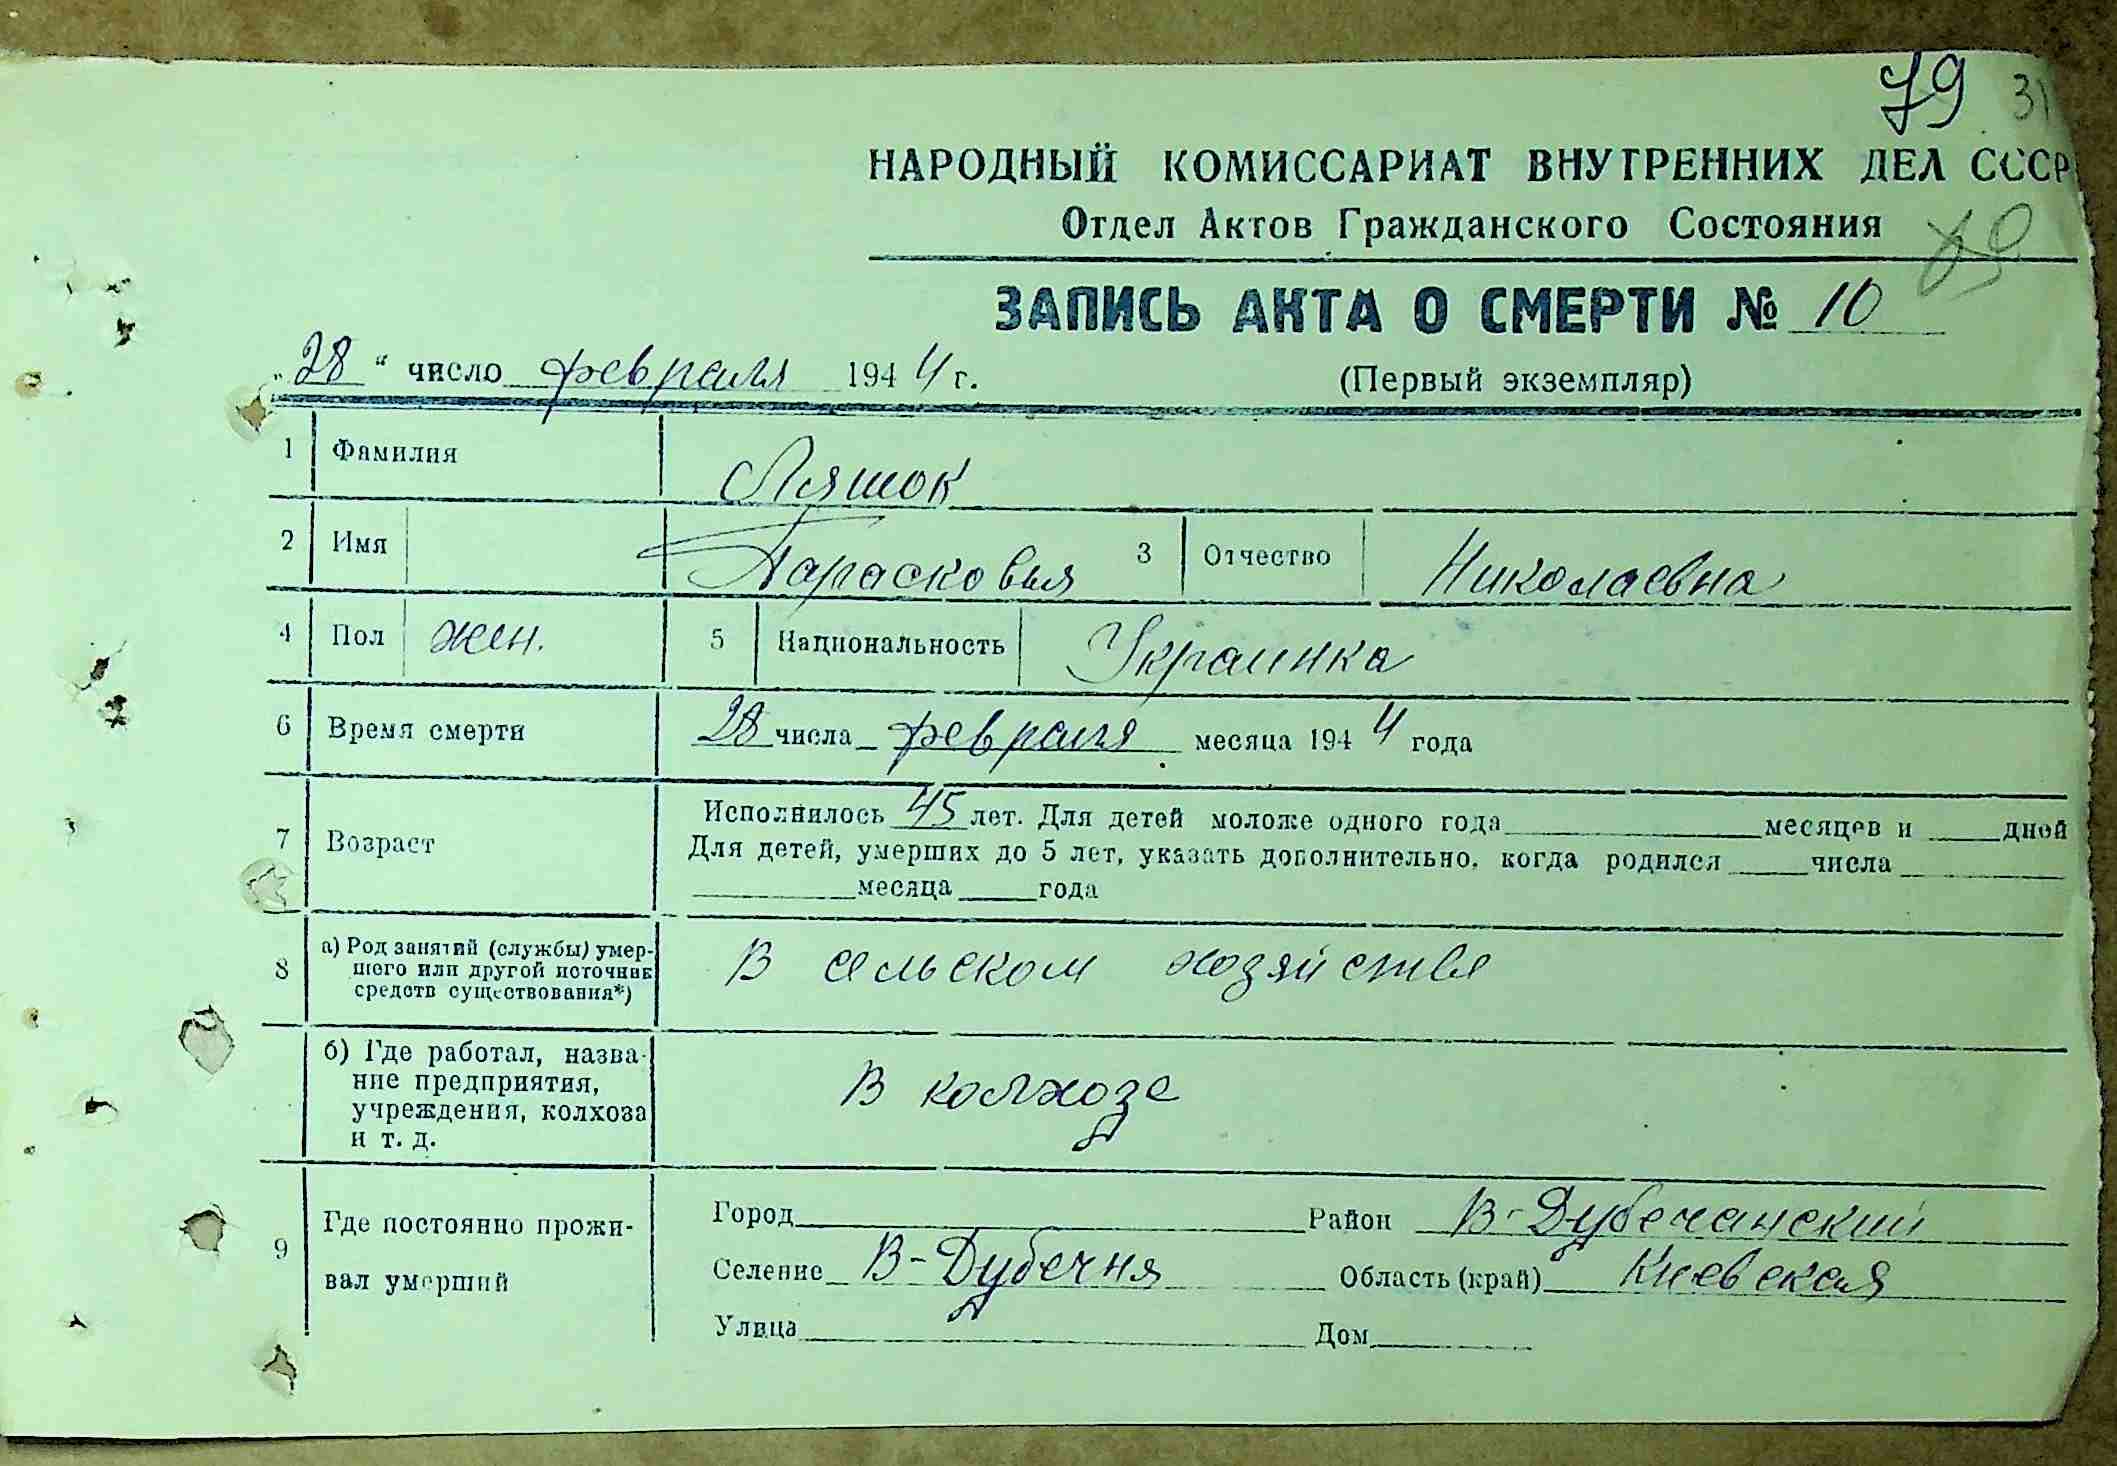 79 31
НАРОДНЫЙ КОМИССАРИАТ ВНУТРЕННИХ ДЕЛ СССР
Отдел Актов Гражданского Состояния
ЗАПИСЬ АКТА О СМЕРТИ № 10
„28“ число февраля 1944 г.
(Первый экземпляр)
1 Фамилия Ляшок
2 Имя Парасковья 3 Отчество Николаевна
4 Пол жен. 5 Национальность Украинка
6 Время смерти 28 числа февраля месяца 1944 года
7 Возраст Исполнилось 45 лет. Для детей моложе одного года месяцев и дней
Для детей, умерших до 5 лет, указать дополнительно, когда родился числа
месяца года
8 а) Род занятий (службы) умер-
шего или другой источник
средств существования*)
В сельском хозяйстве
б) Где работал, назва-
ние предприятия,
учреждения, колхоза
и т. д.
В колхозе
9 Где постоянно прожи-
вал умерший
Город Район В-Дубечанский
Селение В-Дубечня Область (край) Киевская
Улица Дом